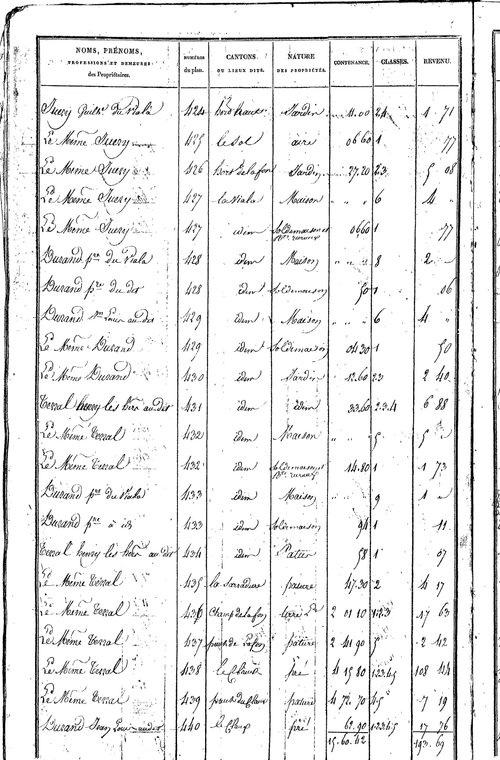 NOMS, PRÉNOMS, PROFESSIONS ET DEMEURES des Propriétaires. NUMÉROS du plan. CANTONS OU LIEUX DITS. NATURE DES PROPRIÉTÉS. CONTENANCE. CLASSES. REVENU.
du Viala 424 Jardin 4.00 24 1 71
Le Même 425 le Sol aire 06 60 1 77
Le Même 426 Jardin 27.20 2.3 5 08
Le Même 427 la Viala Maison " " 6 4 "
Le Même 427 idem Sol de maison et 06 60 1 77
Durand pre du Viala 428 idem Maison " " " 8 2 "
Durand pre du dit 428 idem Sol de maison 50 1 06
Durand Louis au dit 429 idem Maison " " 6 4 "
Le Même Durand 429 idem Sol de maison 04 30 1 50
Le Même Durand 430 idem Jardin 12.60 2.3 2 40
Terral henry les hers au dit 431 idem idem 33.60 2.3.4 6 88
Le Même Terral 432 idem Maison " " 5 5 "
Le Même Terral 432 idem Sol de maison et 14.80 1 1 73
Durand pre du Viala 433 idem Maison 9 1 "
Durand pre à id 433 idem Sol de maison 94 1 11
Terral henry les hers au dit 434 idem Patu 58 1 07
Le Même Terral 435 pature 47.30 2 4 17
Le Même Terral 436 Champ de la fon terre 2 01 10 1.2.3 47 63
Le Même Terral 437 pature 2 41 90 5 2 42
Le Même Terral 438 le Claux pré 4 15 80 1.2.3.4.5 108 44
Le Même Terral 439 pature 4 72 70 4.5 7 19
Durand Jean Louis au dit 440 le Claux pré 62.90 1.2.3.4.5 17 76
15.60.62 193.69